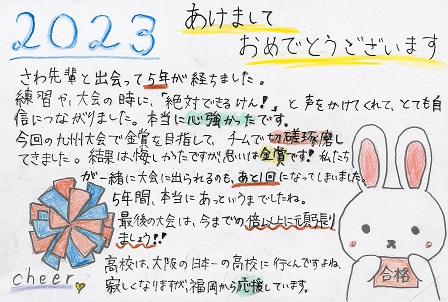 2023
あけまして
おめでとうございます
さわ先輩と出会って5年が経ちました。
練習や、大会の時に、「絶対できるけん!」と声をかけてくれて、とても自
信につながりました。本当に心強かったです。
今回の九州大会で金賞を目指して、チームで切磋琢磨し
てきました。結果は、悔しかたですが、思いは金賞です!私たち
が一緒に大会に出られるのも、あと1回になってしまいました。
5年間、本当にあっというまでしたね。
最後の大会は、今までの倍以上に頑張り
ましょう!!
高校は、大阪の日本一の高校に行くんですよね。
寂しくなりますが、福岡から応援しています。
cheer
合格